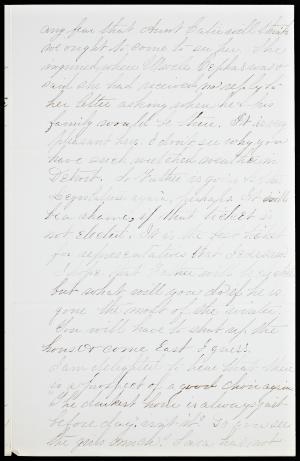 any fear that Aunt Katie will think
we ought to come to see her. She
inquired where Uncle Cephas was &
said she had received no reply to
her letter asking when he & his
family would be there. It is very
pleasant here. I don't see why you
have such wretched weather in
Detroit. Is Father going to the
Legislature again, perhaps. It will
be a shame, if that ticket is
not elected. It is the best ticket
for representatives that I ever saw.
I hope that Father will be elected
but what will you do if he is
gone the most of the winter.
You will have to shut up the
house & come East I guess.
I am delighted to hear that there
is a prospect of a good choir again
"The darkest hour is always just
before day, aright it? Do you see
the girls much? Laura has not